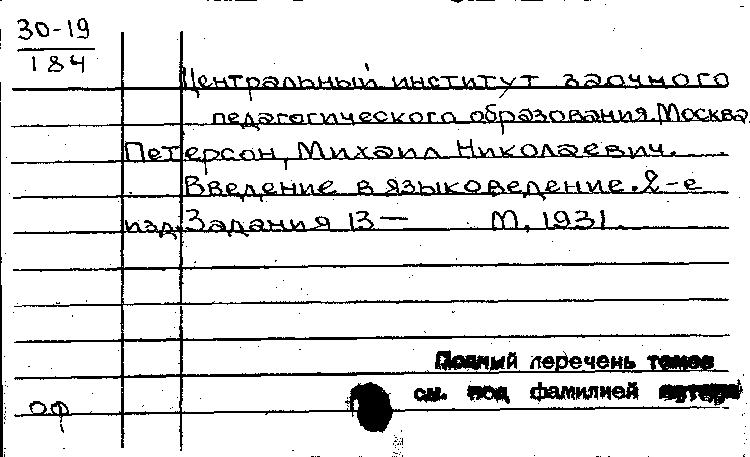 30-19
184
Центральный институт заочного
педагогического образования. Москва
Петерсон, Михаил Николаевич.
Введение в языковедение. 2-е
изд. Задания 13— М., 1931.
Полный перечень томов
см. под фамилией автора
ОФ